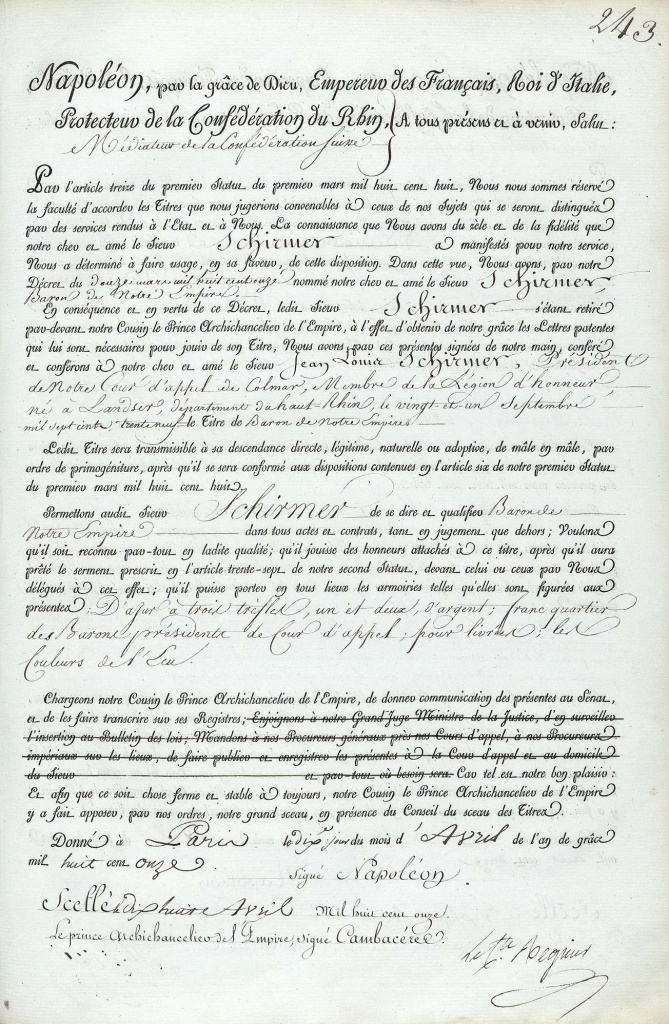 243.
Napoléon, par la grâce de Dieu, Empereur des Français, Roi d'Italie,
Protecteur de la Confédération du Rhin, A tous présens et à venir, Salut :
Médiateur de la Confédération Suisse
Par l'article treize du premier Statut du premier mars mil huit cent huit, Nous nous sommes réservé
la faculté d'accorder les Titres que nous jugerions convenables à ceux de nos Sujets qui se seront distingués
par des services rendus à l'Etat et à Nous. La connaissance que Nous avons du zèle et de la fidélité que
notre cher et amé le Sieur Schirmer a manifestés pour notre service,
Nous a déterminé à faire usage, en sa faveur, de cette disposition. Dans cette vue, Nous avons, par notre
Décret du douze mars mil huit cent onze nommé notre cher et amé le Sieur Schirmer
Baron de Notre Empire.
En conséquence et en vertu de ce Décret, ledit Sieur Schirmer s'étant retiré
par-devant notre Cousin le Prince Archichancelier de l'Empire, à l'effet d'obtenir de notre grâce les Lettres patentes
qui lui sont nécessaires pour jouir de son Titre, Nous avons par ces présentes signées de notre main, conféré
et conférons à notre cher et amé le Sieur Jean Louis Schirmer, Président
de Notre Cour d'appel de Colmar, Membre de la Légion d'honneur
né à Landser, département du haut-Rhin, le vingt et un Septembre
mil sept cent trente neuf le Titre de Baron de Notre Empire
Ledit Titre sera transmissible à sa descendance directe, légitime, naturelle ou adoptive, de mâle en mâle, par
ordre de primogéniture, après qu'il se sera conformé aux dispositions contenues en l'article six de notre premier Statut
du premier mars mil huit cent huit.
Permettons audit Sieur Schirmer de se dire et qualifier Baron de
Notre Empire dans tous actes et contrats, tant en jugement que dehors ; Voulons
qu'il soit reconnu par-tout en ladite qualité ; qu'il jouisse des honneurs attachés à ce titre, après qu'il aura
prêté le serment prescrit en l'article trente-sept de notre second Statut, devant celui ou ceux par Nous
délégués à cet effet ; qu'il puisse porter en tous lieux les armoiries telles qu'elles sont figurées aux
présentes : D'azur à trois trefles, un et deux, d'argent ; franc quartier
des Barons présidents de Cour d'appel ; pour livrées : les
Couleurs de l'Ecu.
Chargeons notre Cousin le Prince Archichancelier de l'Empire, de donner communication des présentes au Sénat,
et de les faire transcrire sur ses Registres ; Enjoignons à notre Grand Juge Ministre de la Justice, d'en surveiller
l'insertion au Bulletin des lois ; Mandons à nos Procureurs généraux près nos Cours d'appel, à nos Procureurs
impériaux sur les lieux, de faire publier et enregistrer les présentes à la Cour d'appel et au domicile
du Sieur et par-tout où besoin sera Car tel est notre bon plaisir :
Et afin que ce soit chose ferme et stable à toujours, notre Cousin le Prince Archichancelier de l'Empire
y a fait apposer, par nos ordres, notre grand sceau, en présence du Conseil du sceau des Titres.
Donné à Paris le dix.e jour du mois d'Avril de l'an de grâce
mil huit cent onze. signé Napoléon.
Scellé le dix huit Avril Mil huit cent onze.
Le prince Archichancelier de l'Empire, signé Cambacérès.
Regnier